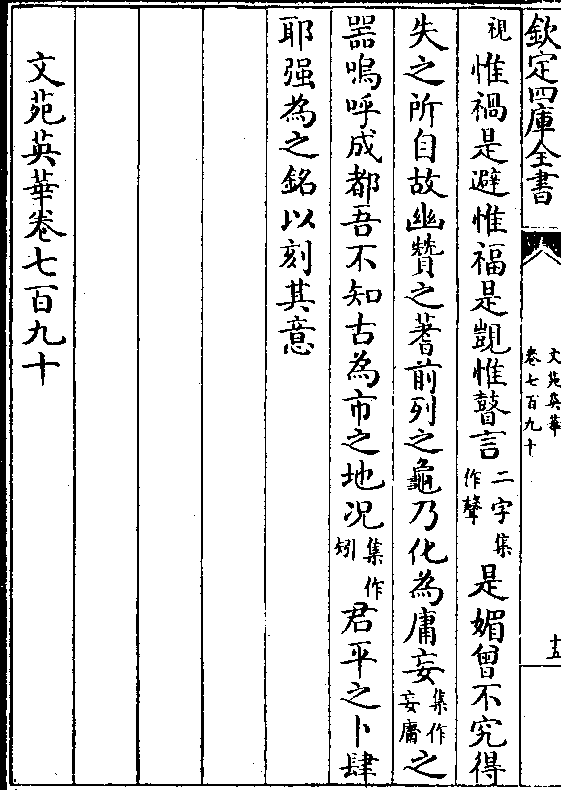 欽定四庫全書
文苑英華
卷七百九十
十五
視惟禍是避惟福是覬惟瞽言二字集作聲是媚曾不究得
失之所自故幽贊之蓍前列之龜乃化為庸妄集作妄庸之
器嗚呼成都吾不知古為市之地况集作矧君平之卜肆
耶强為之銘以刻其意
文苑英華卷七百九十